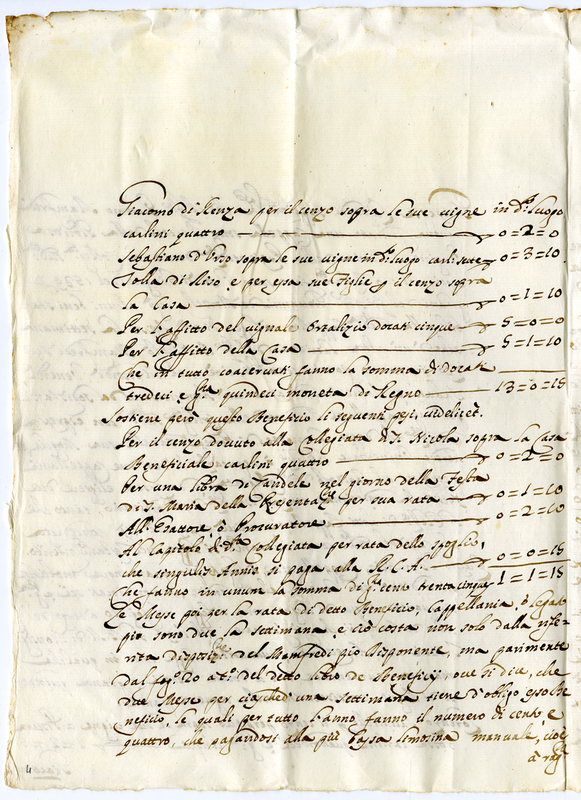 Giacomo di Renza per il cenzo sopra le sue vigne in d.º luogo
carlini quattro — 0=2=0
Sebastiano d'Urso sopra le sue vigne in d.º luogo carl: sette 0=3=10
Tolla di Riso, e per essa sue figlie p il cenzo sopra
la Casa — 0=1=10
Per l'affitto del vignale docati cinque — 5=0=0
Per l'affitto della Casa — 5=1=10
Che in tutto coacervati fanno la somma di docati
tredeci, e gr.a quindeci moneta di Regno — 13=0=15
Sostiene però questo Beneficio li seguenti pesi, videlicet.
Per il cenzo dovuto alla Collegiata di S. Nicola sopra la Casa
Beneficiale carlini quattro — 0=2=0
Per una libra di Candele nel giorno della Festa
di S. Maria della Presentaz.e per sua rata — 0=1=10
All'Esattore ò Procuratore — 0=2=10
Al Capitolo di d.ta Collegiata per rata dello spoglio,
che singulis Annis si paga alla R. C. A. — 0=0=15
che fanno in unum la somma di gr.a cento trentacinque 1=1=15
Le Messe poi per la rata di detto Beneficio, Cappellania, ò legato
pio sono due la settimana, e ciò costa non solo dalla rife-
rita disposiz.e del Manfredi pio disponente, ma parimente
dal fog.º 20 a t.º del detto libro de Beneficij, ove si dice, che
due Messe per ciasched'una settimana tiene d'obligo esso Be-
neficio, le quali per tutto l'anno fanno il numero di cento, e
quattro, che pagandosi alla più bassa limosina manuale, cioè
à rag.e
4